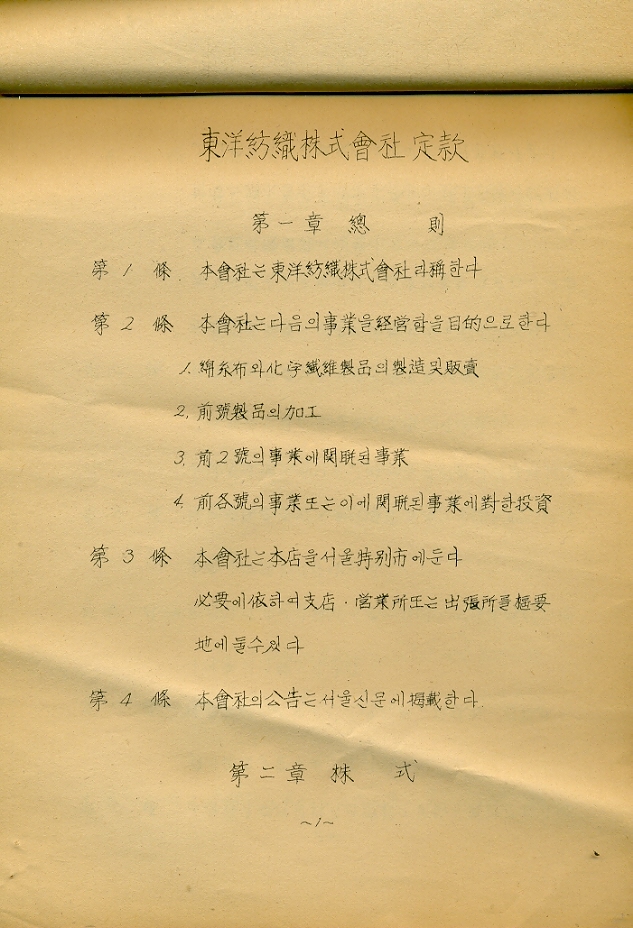 東洋紡織株式會社 定款
第一章 總 則
第 1 條 本會社는東洋紡織株式會社라稱한다
第 2 條 本會社는다음의事業을経営함을目的으로한다
1. 綿糸布와化学纖維製品의製造및販賣
2. 前號製品의加工
3. 前2號의事業에関聯된事業
4. 前各號의事業또는이에関聯된事業에對한投資
第 3 條 本會社는本店을서울特別市에둔다
必要에依하여支店·営業所또는出張所를樞要
地에둘수있다
第 4 條 本會社의公告는서울신문에揭載한다.
第二章 株 式
~1~